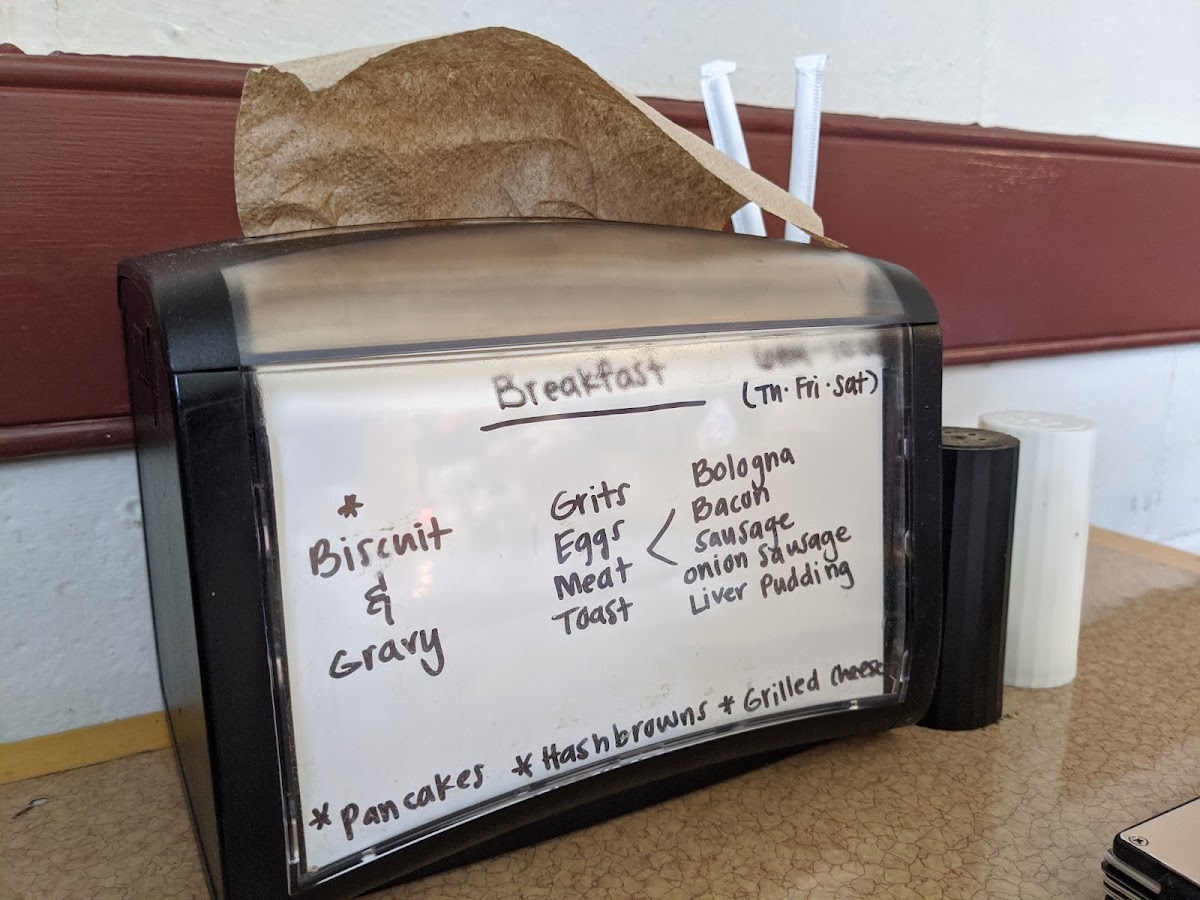 Breakfast
(Th. Fri. Sat)
*
Biscuit
&
Gravy
Grits
Eggs
Meat
Toast
Bologna
Bacon
sausage
onion sausage
Liver Pudding
* Pancakes * Hashbrowns * Grilled cheese